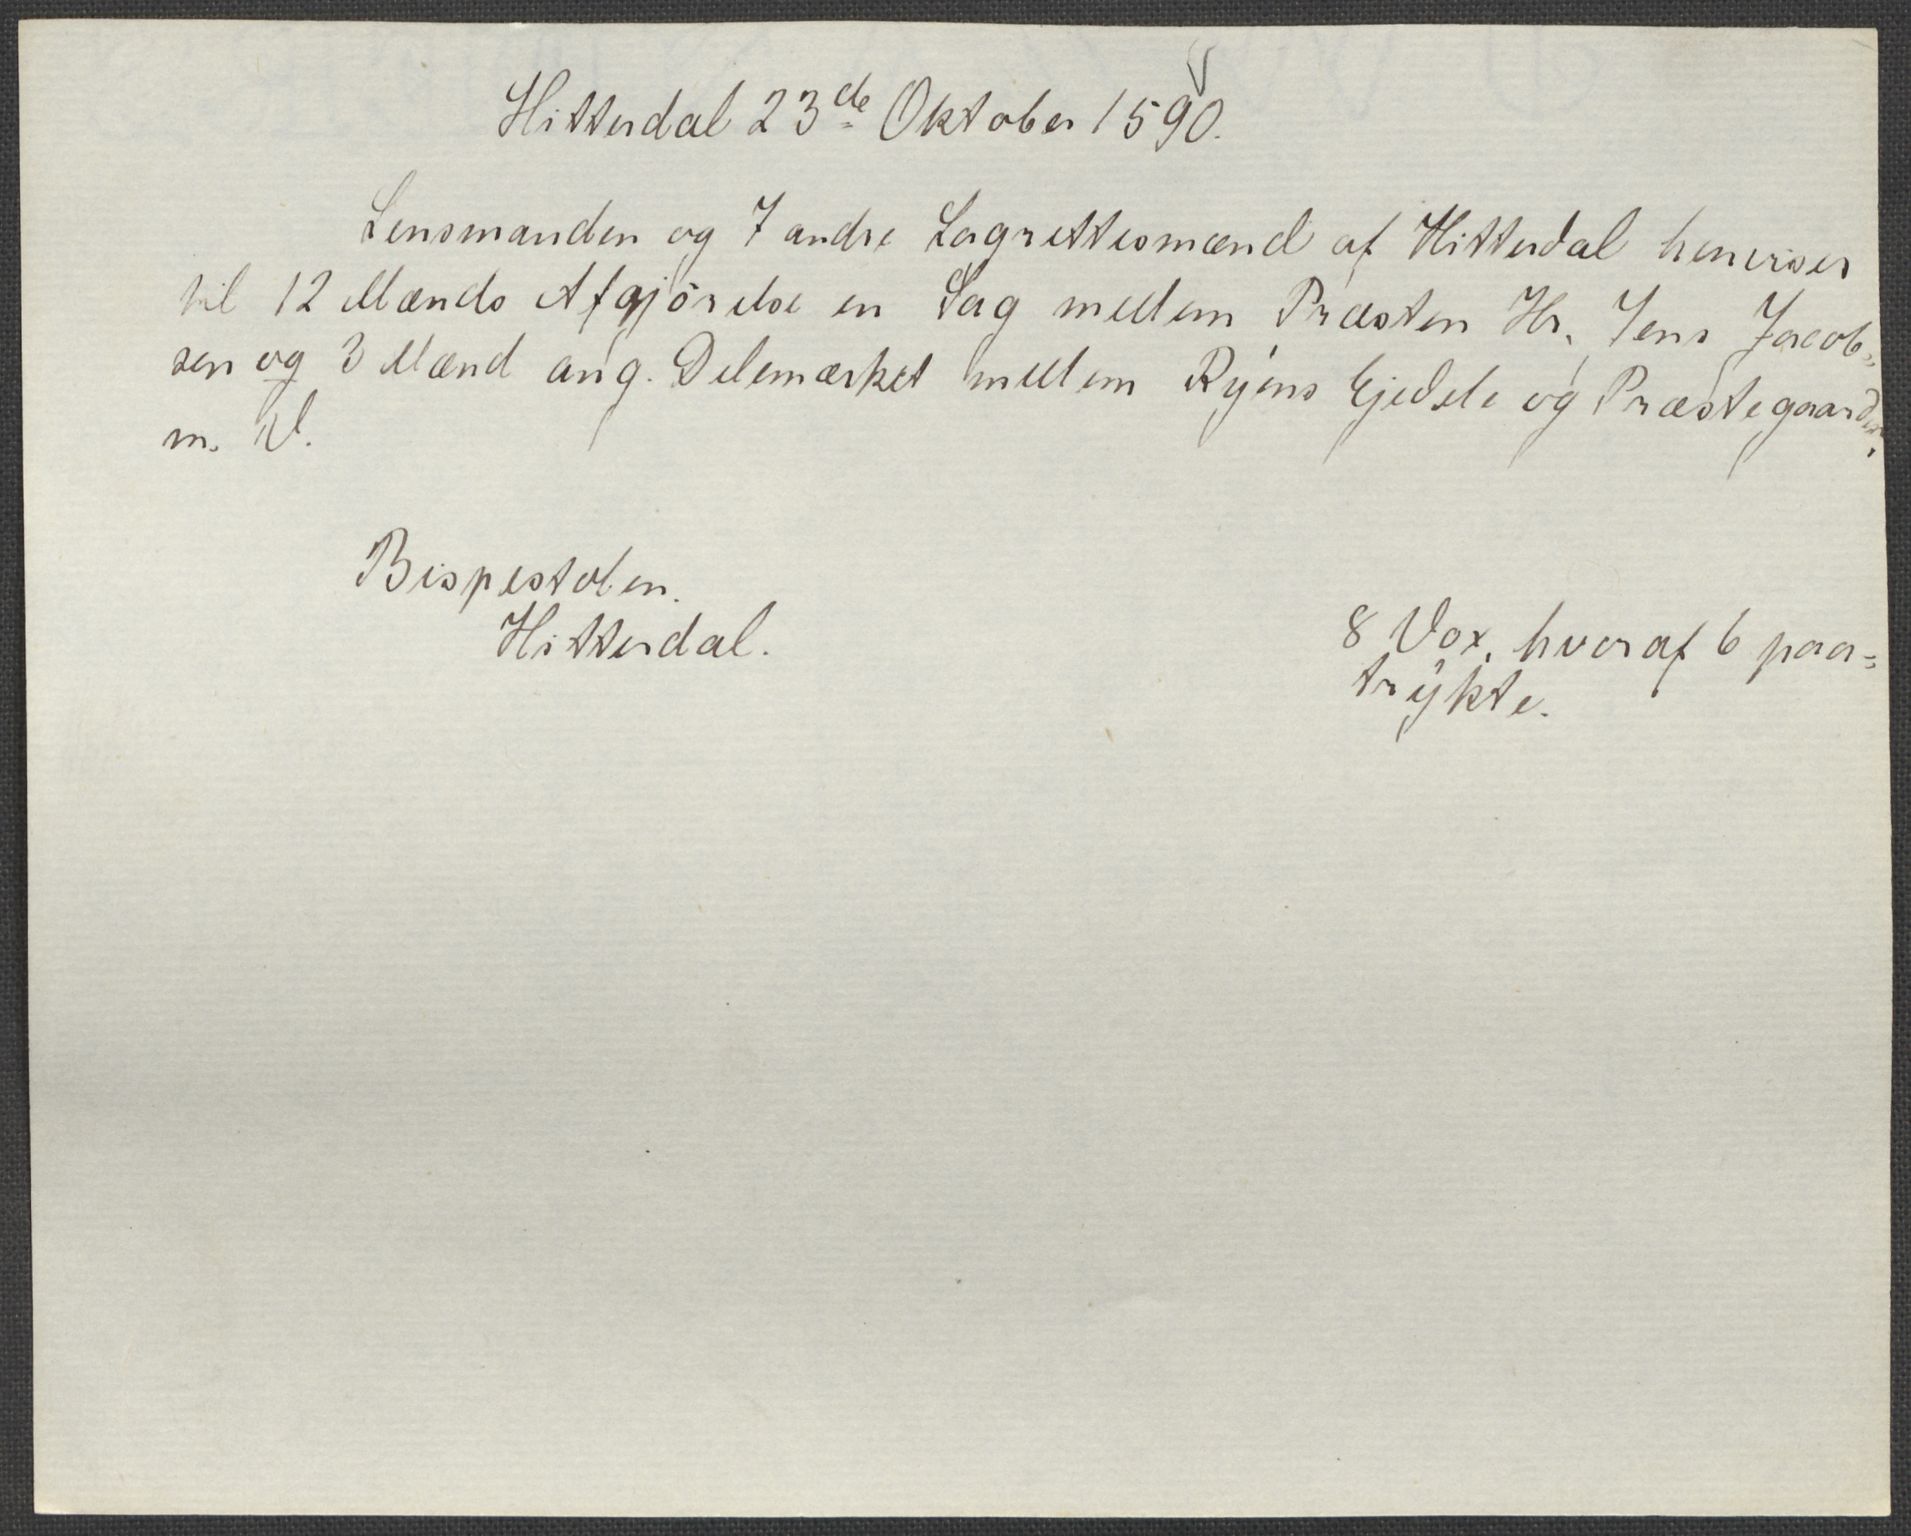 Hitterdal 23de Oktober 1590.
Lensmanden og 7 andre Lagrettesmænd af Hitterdal henviser
til 12 Mænds Afgjörelse en Sag mellem Præsten Hr. Jens Jacob=
sen og 3 Mænd ang. Delemærket mellem Ryens Ejedele og Præstegaarden,
m. V.
Bispestolen.
Hitterdal.
8 Vox, hvoraf 6 paa=
trykte.